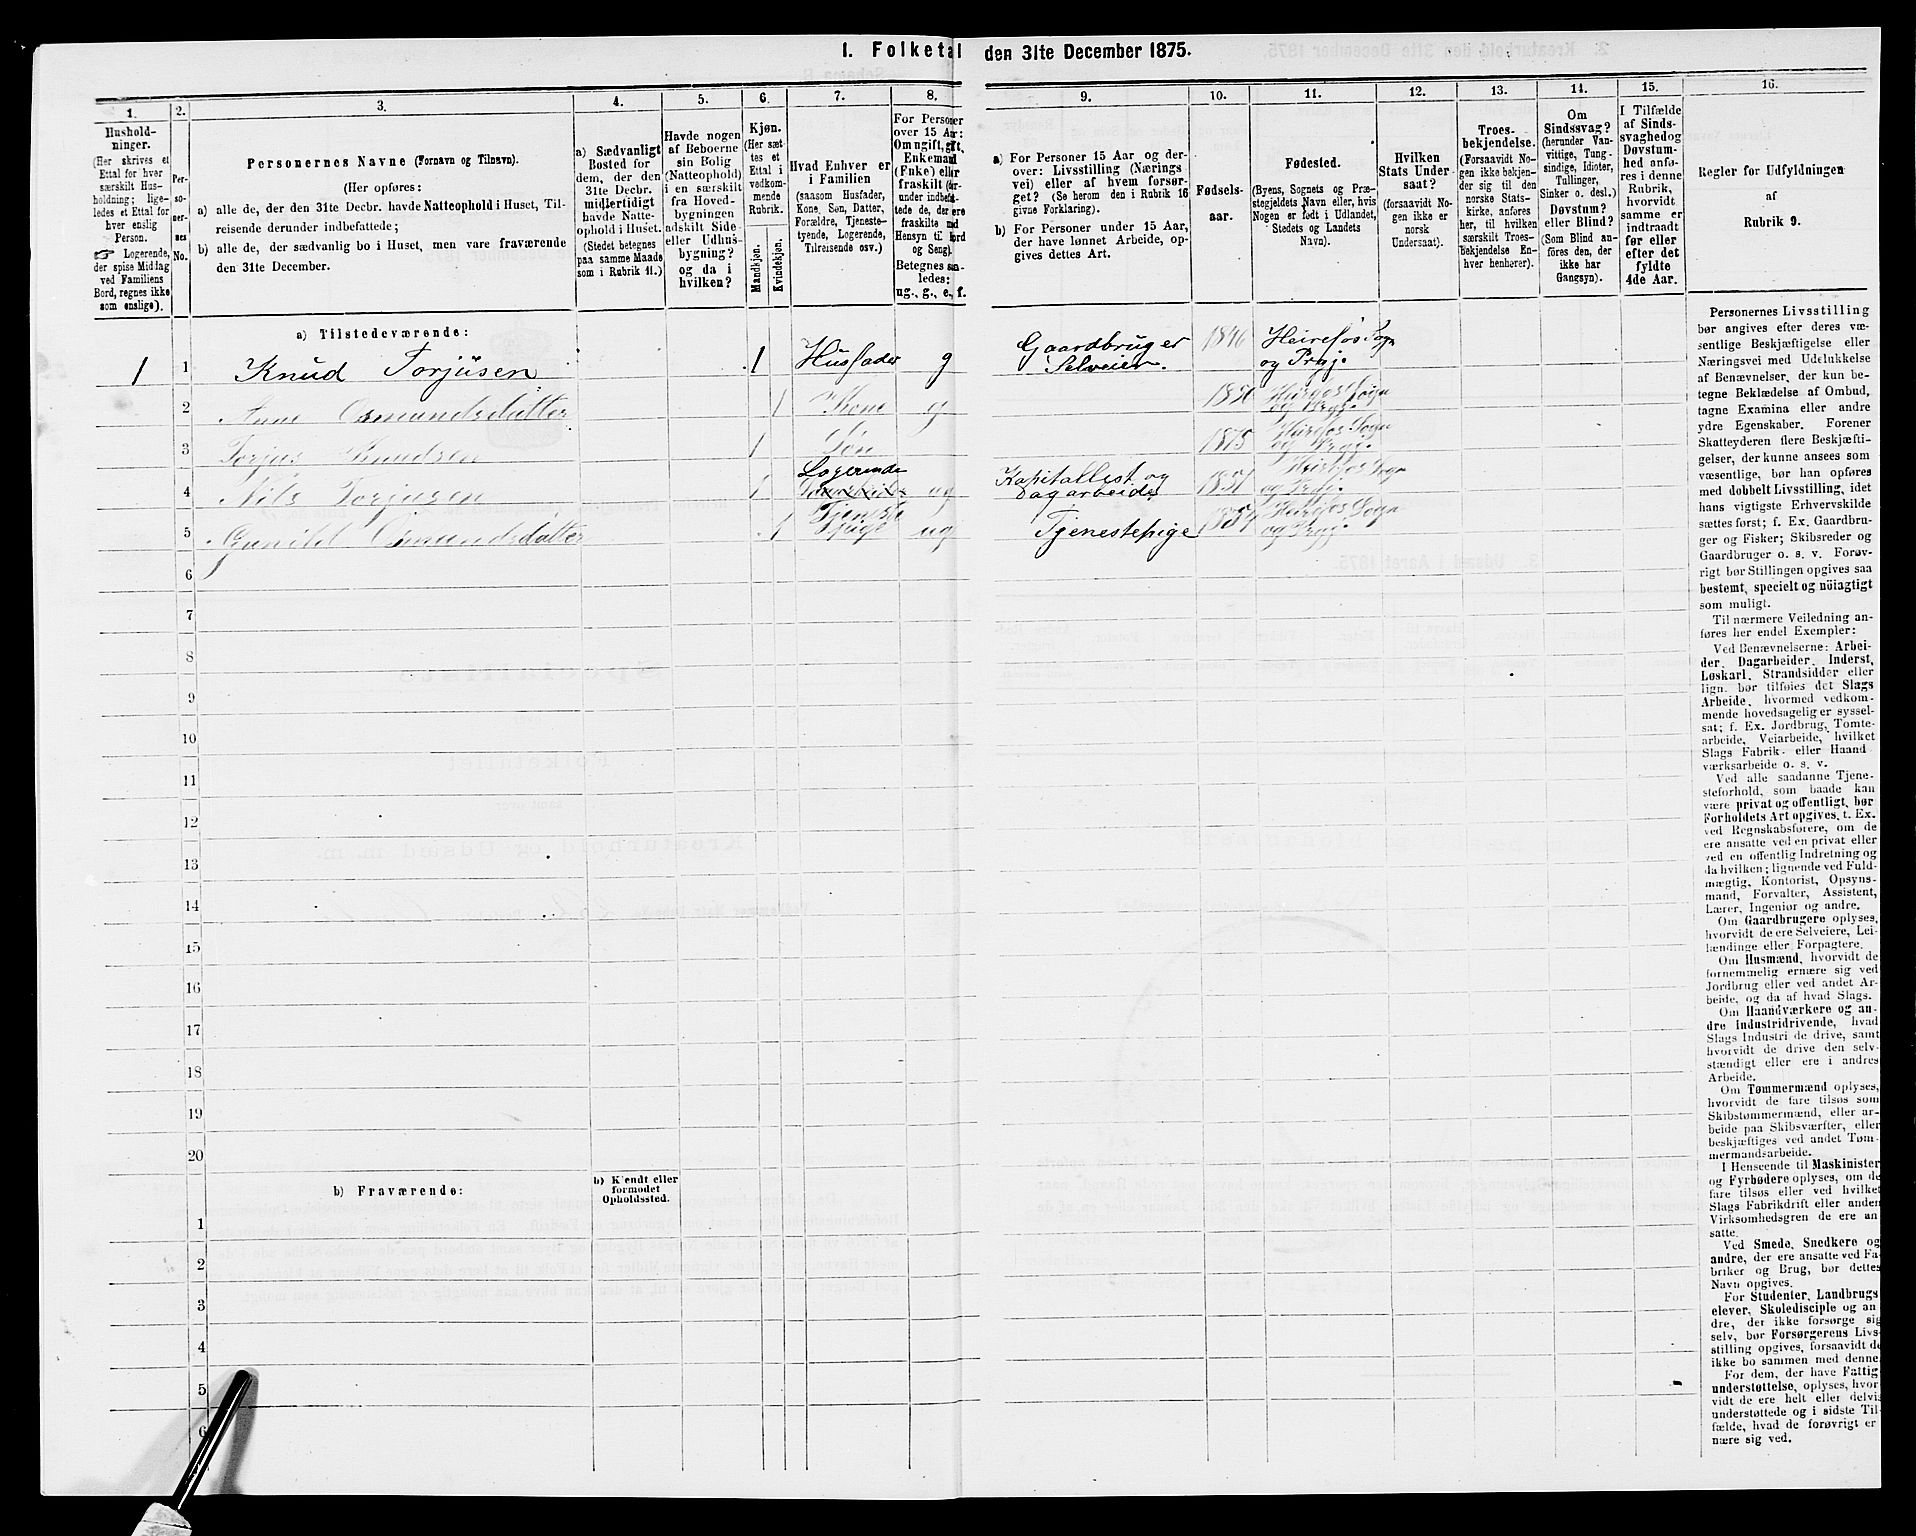 I. Folketal den 31te December 1875.
1.
Hushold-
ninger.
(Her skrives et
Ettal for hver
særskilt Hus-
holdning; lige-
ledes et Ettal for
hver enslig
Person.
☞ Logerende,
der spise Middag
ved Familiens
Bord, regnes ikke
som enslige).
2.
Per-
so-
ner-
nes
No.
3.
Personernes Navne (Fornavn og Tilnavn).
(Her opføres:
a) alle de, der den 31te Decbr. havde Natteophold i Huset, Til-
reisende derunder indbefattede;
b) alle de, der sædvanlig bo i Huset, men vare fraværende
den 31te December.
4.
a) Sædvanligt
Bosted for
dem, der den
31te Decbr.
midlertidigt
havde Natte-
ophold i Huset.
(Stedet betegnes
paa samme Maade
som i Rubrik 11.)
5.
Havde nogen
af Beboerne
sin Bolig
(Natteophold)
i en særskilt
fra Hoved-
bygningen
adskilt Side-
eller Udhus-
bygning?
og da i
hvilken?
6.
Kjøn.
(Her sæt-
tes et
Ettal i
vedkom-
mende
Rubrik.
Mandkjøn.
Kvindekjøn.
7.
Hvad Enhver er
i Familien
(saasom Husfader,
Kone, Søn, Datter,
Forældre, Tjeneste-
tyende, Logerende,
Tilreisende osv.)
8.
For Personer
over 15 Aar:
Om ugift, gift,
Enkemand
(Enke) eller
fraskilt (der-
under indbefat-
tede de, der ere
fraskilte med
Hensyn til Bord
og Seng).
Betegnes saa-
ledes:
ug., g., e., f.
9.
a) For Personer 15 Aar og der-
over: Livsstilling (Nærings
vei) eller af hvem forsør-
get? (Se herom den i Rubrik 16
givne Forklaring).
b) For Personer under 15 Aar,
der have lønnet Arbeide, op-
gives dettes Art.
10.
Fødsels-
aar.
11.
Fødested.
(Byens, Sognets og Præ-
stegjeldets Navn eller, hvis
Nogen er født i Udlandet,
Stedets og Landets
Navn).
12.
Hvilken
Stats Under
saat?
(forsaavidt No
gen ikke er
norsk
Undersaat).
13.
Troes-
bekjendelse.
(Forsaavidt No-
gen ikke bekjen-
der sig til den
norske Stats-
kirke, anføres
her, til hvilken
særskilt Troes-
bekjendelse En-
hver henhører).
14.
Om
Sindssvag?
(herunder Van-
vittige, Tung-
sindige, Idioter,
Tullinger,
Sinker o. desl.)
Døvstum?
eller Blind?
(Som Blind an-
føres den, der
ikke har
Gangsyn).
15.
I Tilfælde
af Sinds-
svaghed og
Døvstum-
hed anfø-
res i denne
Rubrik,
hvorvidt
samme er
indtraadt
før eller
efter det
fyldte
4de Aar.
16.
Regler for Udfyldningen
af
Rubrik 9.
a) Tilstedeværende:
1 1 Knud Torjüsen 1 Husfader g Gaardbruger Selveier. 1846 Heirefos Sogn og Prgj.
2 Anne Osmundsdatter 1 Kone g Sogn og Prgj.
3 Torjus Knudsen 1 Søn 1875 Heirefos Sogn og Prgj.
4 Nils Torjusen 1 Logerende ug Kapitallist og Dagarbeider Heirefos Sogn og Prgj.
5 Gunild Osmundsdatter 1 Tjeneste Pige ug Tjenestepige Heirefos Sogn og Prgj.
6
7
8
9
10
11
12
13
14
15
16
17
18
19
20
b) Fraværende:
b) Kjendt eller
formodet
Opholdssted.
1
2
3
4
5
6
Personernes Livsstilling
bør angives efter deres væ-
sentlige Beskjæftigelse eller
Næringsvei med Udelukkelse
af Benævnelser, der kun be-
tegne Beklædelse af Ombud,
tagne Examina eller andre
ydre Egenskaber. Forener
Skatteyderen flere Beskjæfti-
gelser, der kunne ansees som
væsentlige, bør han opføres
med dobbelt Livsstilling, idet
hans vigtigste Erhvervskilde
sættes først; f. Ex. Gaardbru-
ger og Fisker; Skibsreder og
Gaardbruger o. s. v. Forøv-
rigt bør Stillingen opgives saa
bestemt, specielt og nöiagtigt
som muligt.
Til nærmere Veiledning an-
føres her endel Exempler:
Ved Benævnelserne: Arbei-
der, Dagarbeider, Inderst,
Løskarl, Strandsidder eller
lign. bør tilføies det Slags
Arbeide, hvormed vedkom-
mende hovedsagelig er syssel-
sat; f. Ex. Jordbrug, Tomte-
arbeide, Veiarbeide, hvilket
Slags Fabrik- eller Haand
værksarbeide o. s. v.
Ved alle saadanne Tjene-
steforhold, som baade kan
være privat og offentligt, bør
Forholdets Art opgives, t. Ex.
ved Regnskabsførere, om de
ere ansatte ved en privat eller
ved en offentlig Indretning og
da hvilken; lignende ved Fuld-
mægtig, Kontorist, Opsyns-
mand, Forvalter, Assistent,
Lærer, Ingeniør og andre.
Om Gaardbrugere oplyses,
hvorvidt de ere Selveiere, Lei-
lændinge eller Forpagtere.
Om Husmænd, hvorvidt de
fornemmelig ernære sig ved
Jordbrug eller ved andet Ar-
beide, og da af hvad Slags.
Om Haandværkere og an-
dre Industridrivende, hvad
Slags Industri de drive, samt
hvorvidt de drive den selv-
stændigt eller ere i andres
Arbeide.
Om Tømmermænd oplyses,
hvorvidt de fare tilsøs som
Skibstømmermænd, eller ar-
beide paa Skibsværfter, eller
beskjæftiges ved andet Tøm-
mermandsarbeide.
I Henseende til Maskinister
og Fyrbødere oplyses, om de
fare tilsøs eller ved hvilket
Slags Fabrikdrift eller anden
Virksomhedsgren de ere an
satte.
Ved Smede, Snedkere og
andre, der ere ansatte ved Fa-
briker og Brug, bør dettes
Navn opgives.
For Studenter, Landbrugs
elever, Skoledisciple og an
dre, der ikke forsørge sig
selv, bør Forsørgerens Livs-
stilling opgives, forsaavidt de
ikke bo sammen med denne.
For dem, der have Fattig
understøttelse, oplyses, hvor-
vidt de ere helt eller delvis
understøttede og i sidste Til-
fælde, hvad de forøvrigt er
nære sig ved.